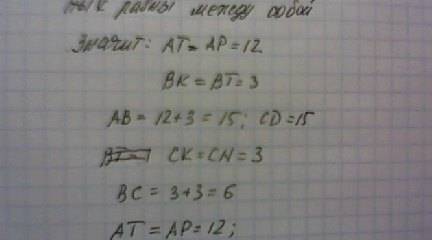 равны между собой
Значит: AT = AP = 12
BK = BT = 3
AB = 12+3 = 15; CD = 15
CK = CN = 3
BC = 3+3 = 6
AT = AP = 12;